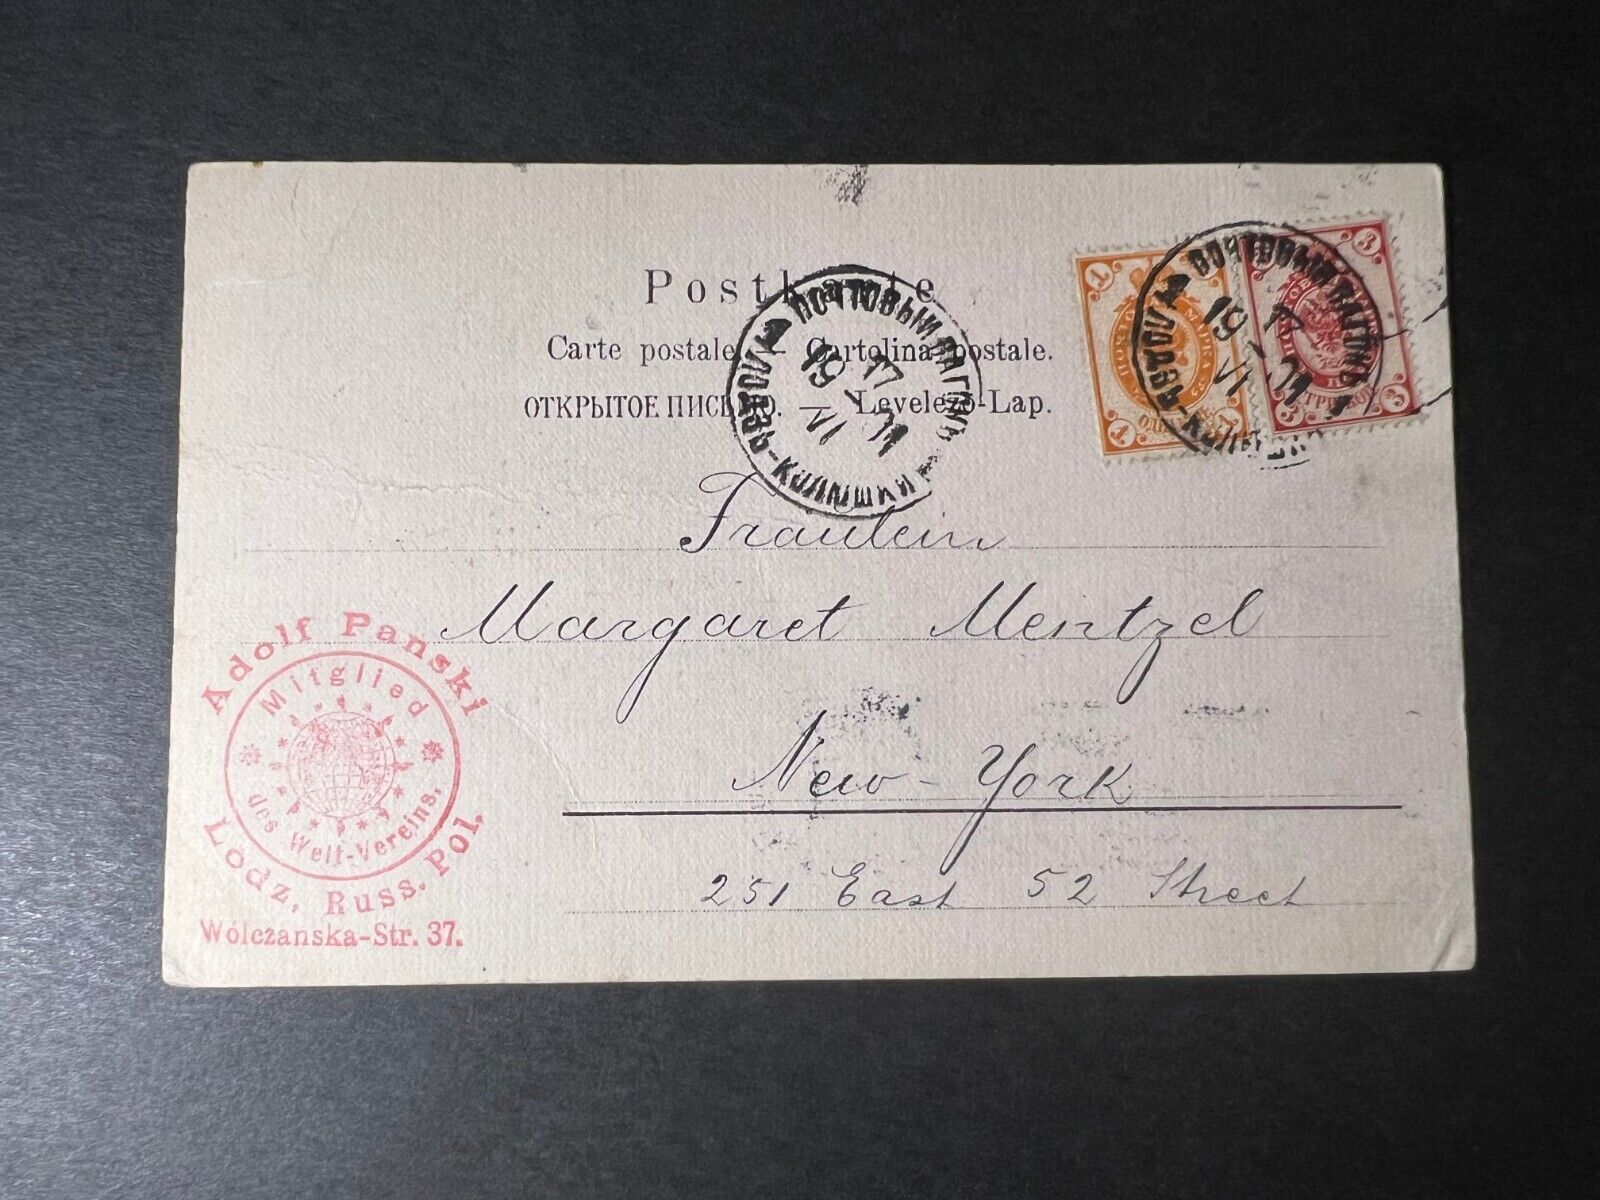 Postkarte
Carte postale. — Cartolina postale.
ОТКРЫТОЕ ПИСЬМО. — Levelező-Lap.
ПОЧТОВЫЙ ВАГОНЪ
КОЛЮШКИ
19 VI
1
1
3
3
3
ПОЧТОВЫЙ ВАГОНЪ
19 VI
Fräulein
Margaret Mentzel
New-York
251 East 52 Street
Adolf Panski
Mitglied
des Welt-Vereins,
Lodz, Russ. Pol.
Wólczanska-Str. 37.